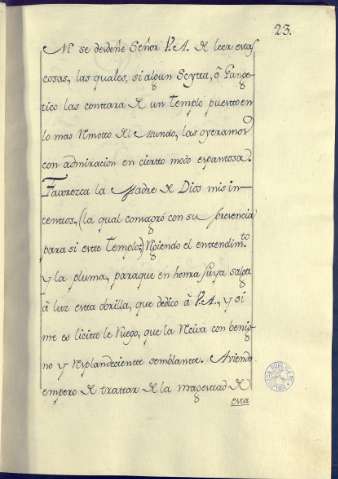 23.
N. se desdeñe Señor P. A. de leer estas
cosas, las quales, si algun Scyta, ò Gange-
tico las contara de un templo puesto en
lo mas remoto del Mundo, las oyeramos
con admiracion en cierto modo espantosa.
Favorezca la Madre de Dios mis in-
tentos, (la qual consagrò con su presencia
para si este Templo) rigiendo el entendim.to
y la pluma, para que en honra suya salga
à luz esta obrilla, que dedico à P. A., y si
me es licito le ruego, que la reciva con benig-
no y resplandeciente semblante. Aviendo
empero de trattar de la magestad de
esta